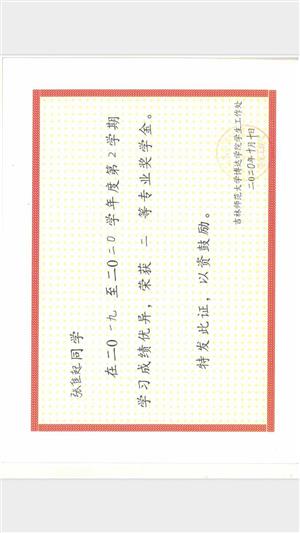 张佳起同学
在二0一九至二0二0学年度第2学期
学习成绩优异，荣获二等专业奖学金。
特发此证，以资鼓励。
吉林师范大学博达学院学生工作处
二0二0年十月十日